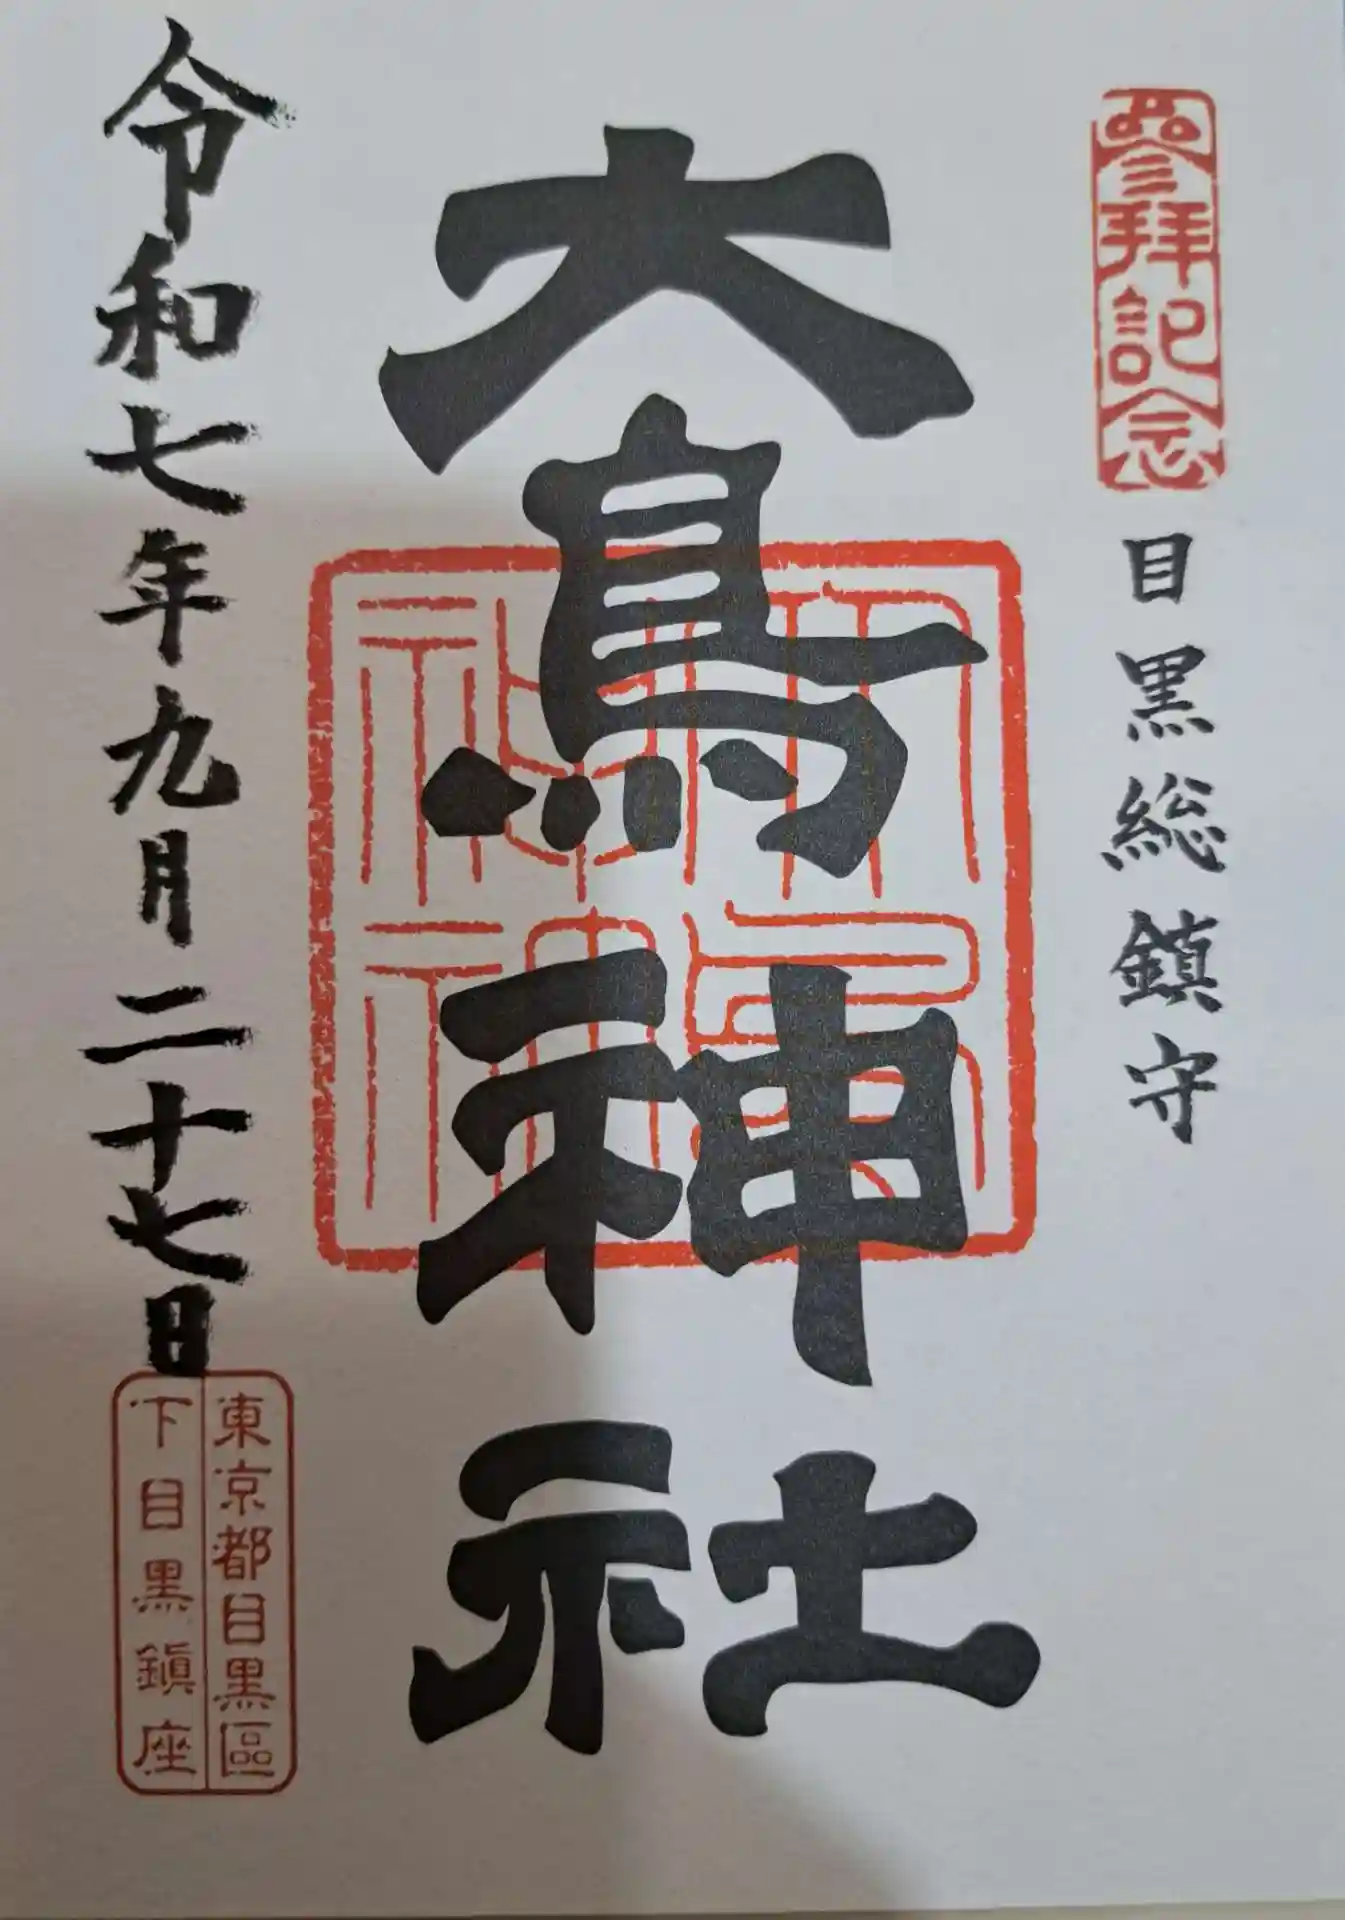 參拜記念
目黒総鎮守
大鳥神社
令和七年九月二十七日
東京都目黒區
下目黒鎮座